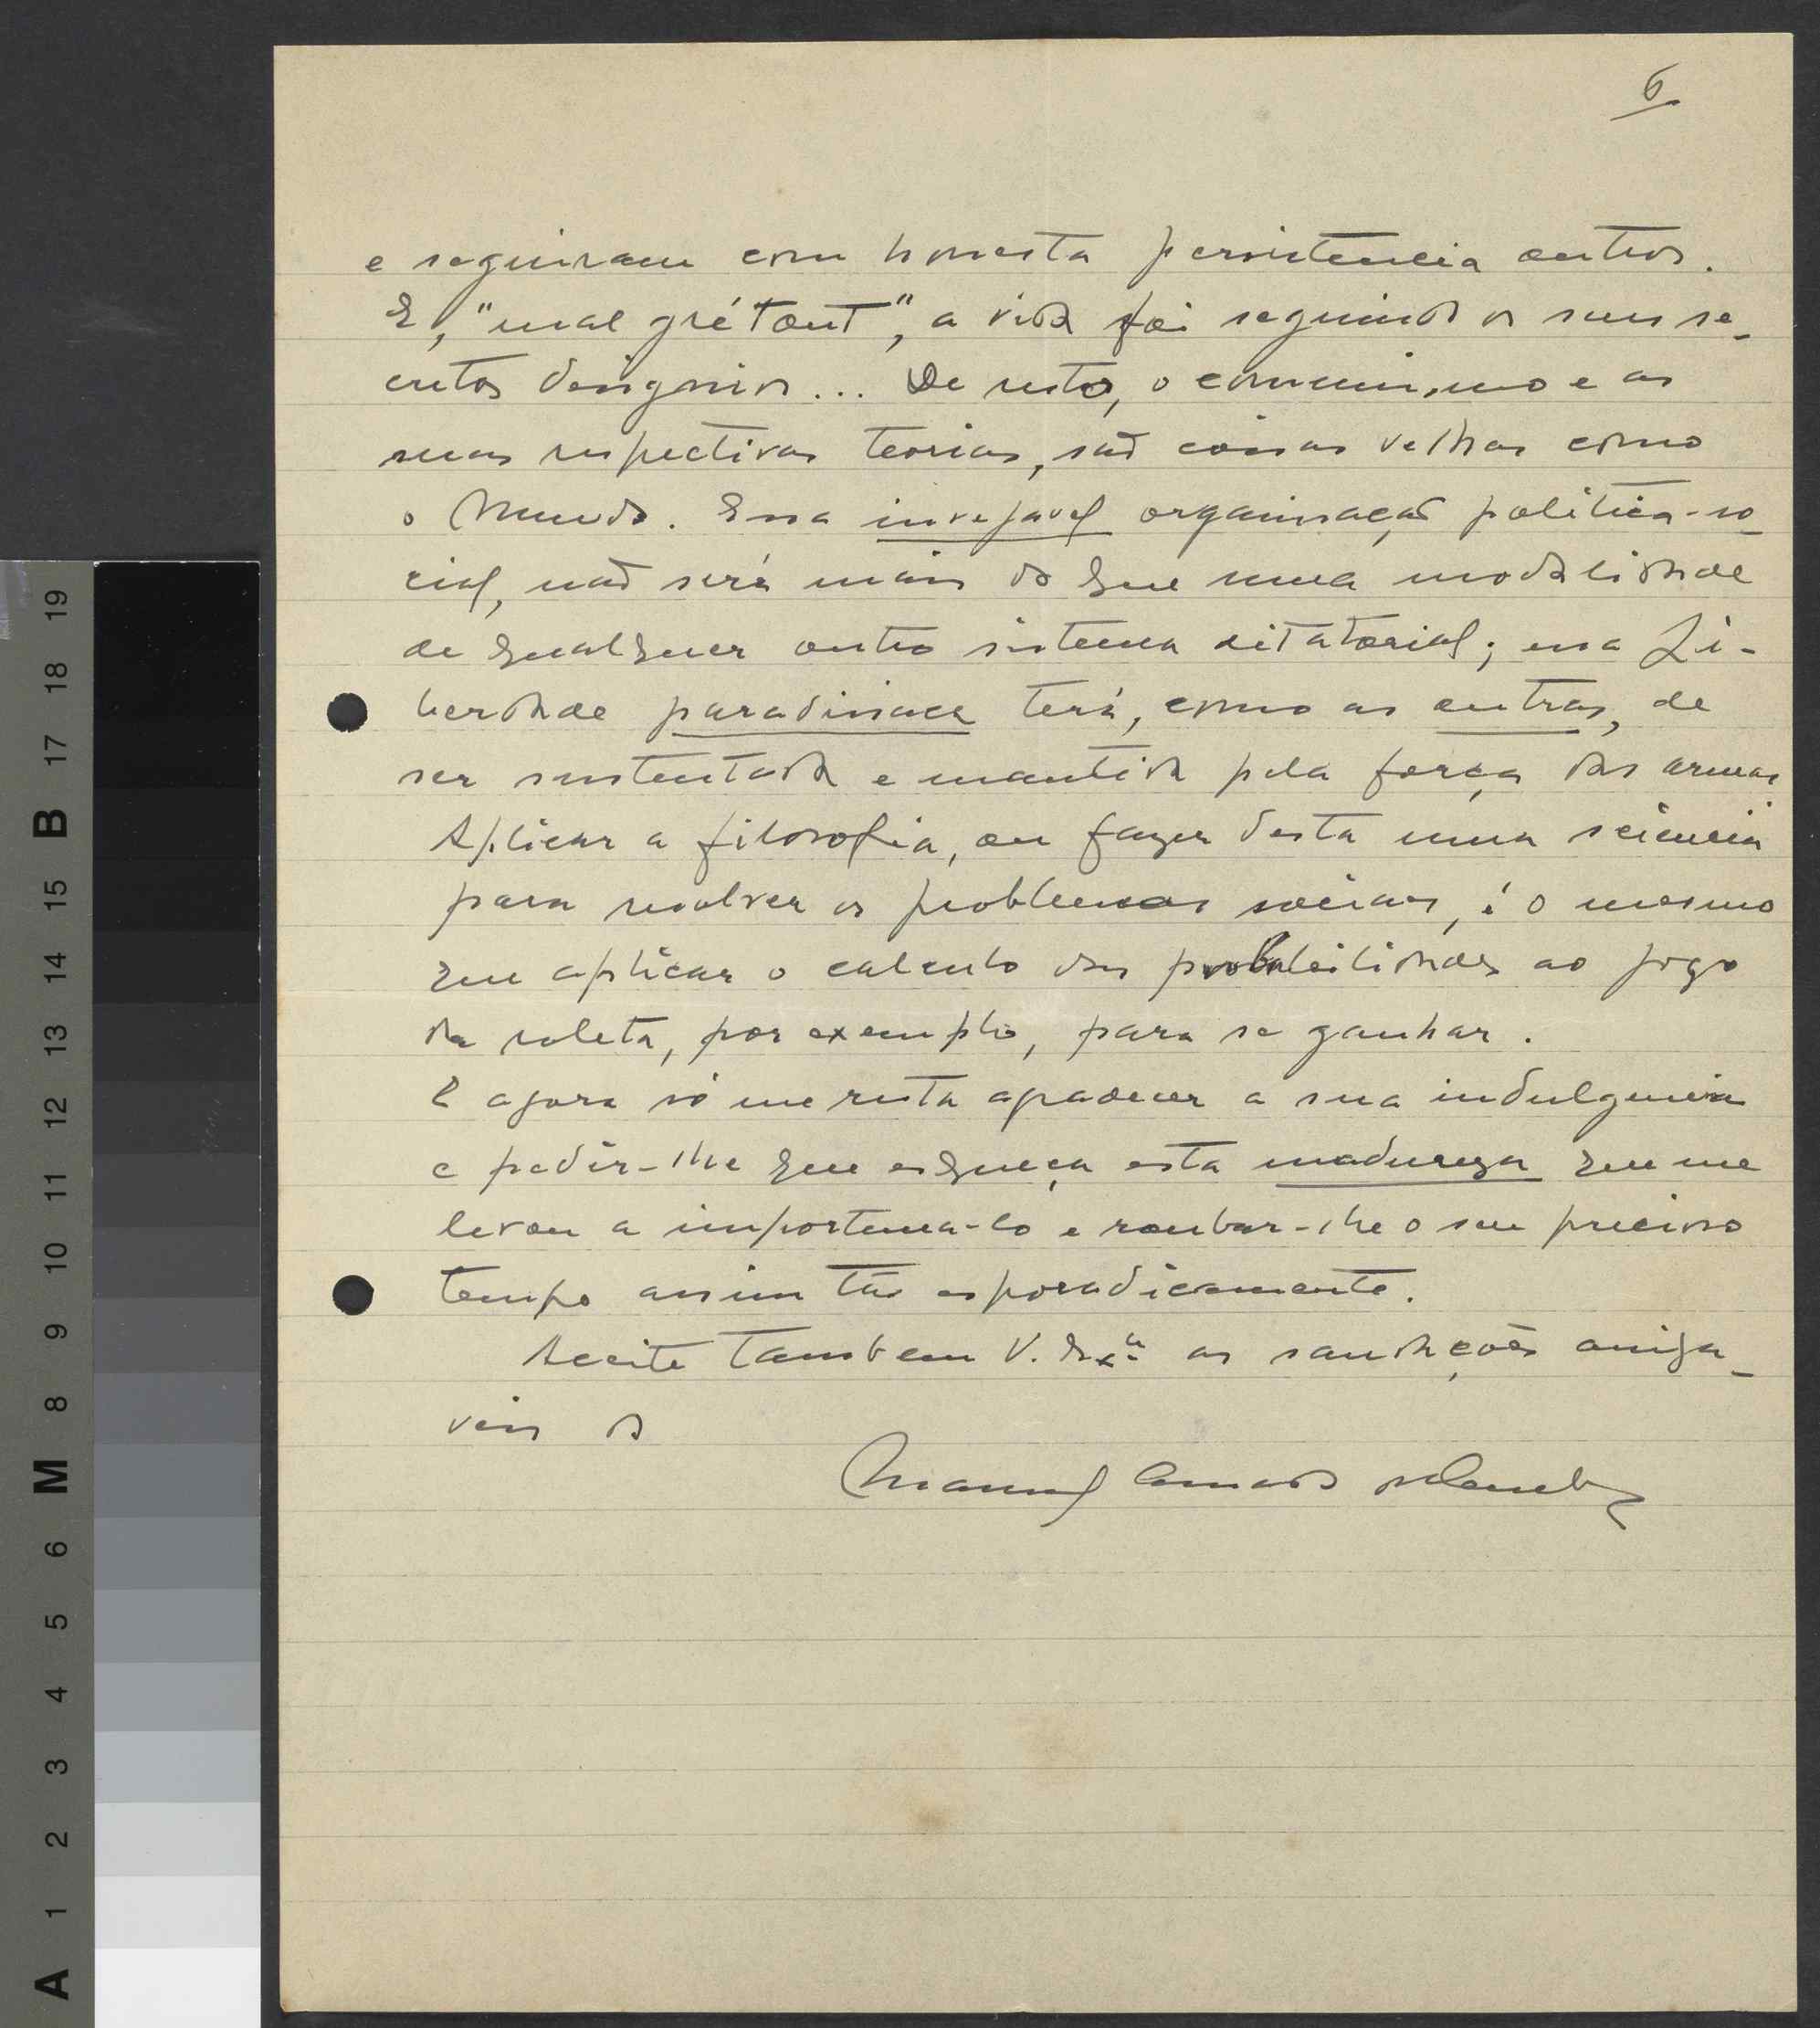 6
e seguiram com honesta persistencia outros.
E, "mal gré tout", a vida foi seguindo os seus se-
cretos designios... De resto, o comunismo e as
suas respectivas teorias, são coisas velhas como
o Mundo. Essa invejavel organisação politica-so-
cial, não será mais do que uma modalidade
de qualquer outro sistema ditatorial; essa Li-
berdade paradisiaca terá, como as outras, de
ser sustentada e mantida pela força das armas.
Aplicar a filosofia, ou fazer desta uma sciencia
para resolver os problemas sociais, é o mesmo
que aplicar o calculo das probabilidades ao jogo
da roleta, por exemplo, para se ganhar.
E agora só me resta agradecer a sua indulgencia
e pedir-lhe que esqueça esta madureza que me
levou a importuna-lo e roubar-lhe o seu precioso
tempo assim tão esporadicamente.
Aceite tambem V. Exª as saudações amiga-
veis do
Manuel
A 1 2 3 4 5 6 M 8 9 10 11 12 13 14 15 B 17 18 19